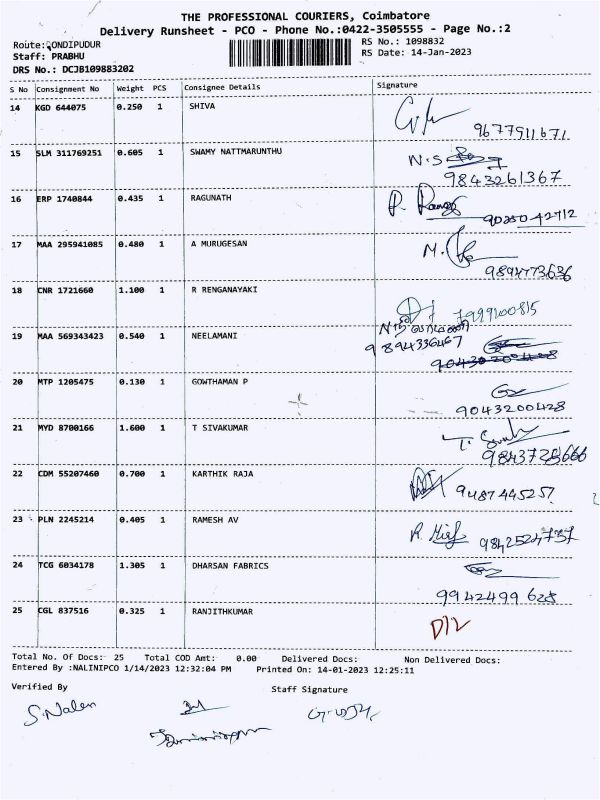 THE PROFESSIONAL COURIERS, Coimbatore
Delivery Runsheet - PCO - Phone No.:0422-3505555 - Page No.:2
Route:GONDIPUDUR
RS No.: 1098832
Staff: PRABHU
RS Date: 14-Jan-2023
DRS No.: DCJB109883202
S No Consignment No Weight PCS Consignee Details Signature
14 KGD 644075 0.250 1 SHIVA
9677911671
15 SLM 311769251 0.605 1 SWAMY NATTMARUNTHU N.S
9843261367
16 ERP 1740844 0.435 1 RAGUNATH P.
17 MAA 295941085 0.480 1 A MURUGESAN M.
9894773636
18 CNR 1721660 1.100 1 R RENGANAYAKI
7999100815
19 MAA 569343423 0.540 1 NEELAMANI
9894336467
20 MTP 1205475 0.130 1 GOWTHAMAN P
9043200428
21 MYD 8700166 1.600 1 T SIVAKUMAR T.
9843728666
22 CDM 55207460 0.700 1 KARTHIK RAJA
9487445257
23 PLN 2245214 0.405 1 RAMESH AV R.
9842524737
24 TCG 6034178 1.305 1 DHARSAN FABRICS
9942499628
25 CGL 837516 0.325 1 RANJITHKUMAR
D/L
Total No. Of Docs: 25 Total COD Amt: 0.00 Delivered Docs: Non Delivered Docs:
Entered By :NALINIPCO 1/14/2023 12:32:04 PM Printed On: 14-01-2023 12:25:11
Verified By Staff Signature
S.Nalen